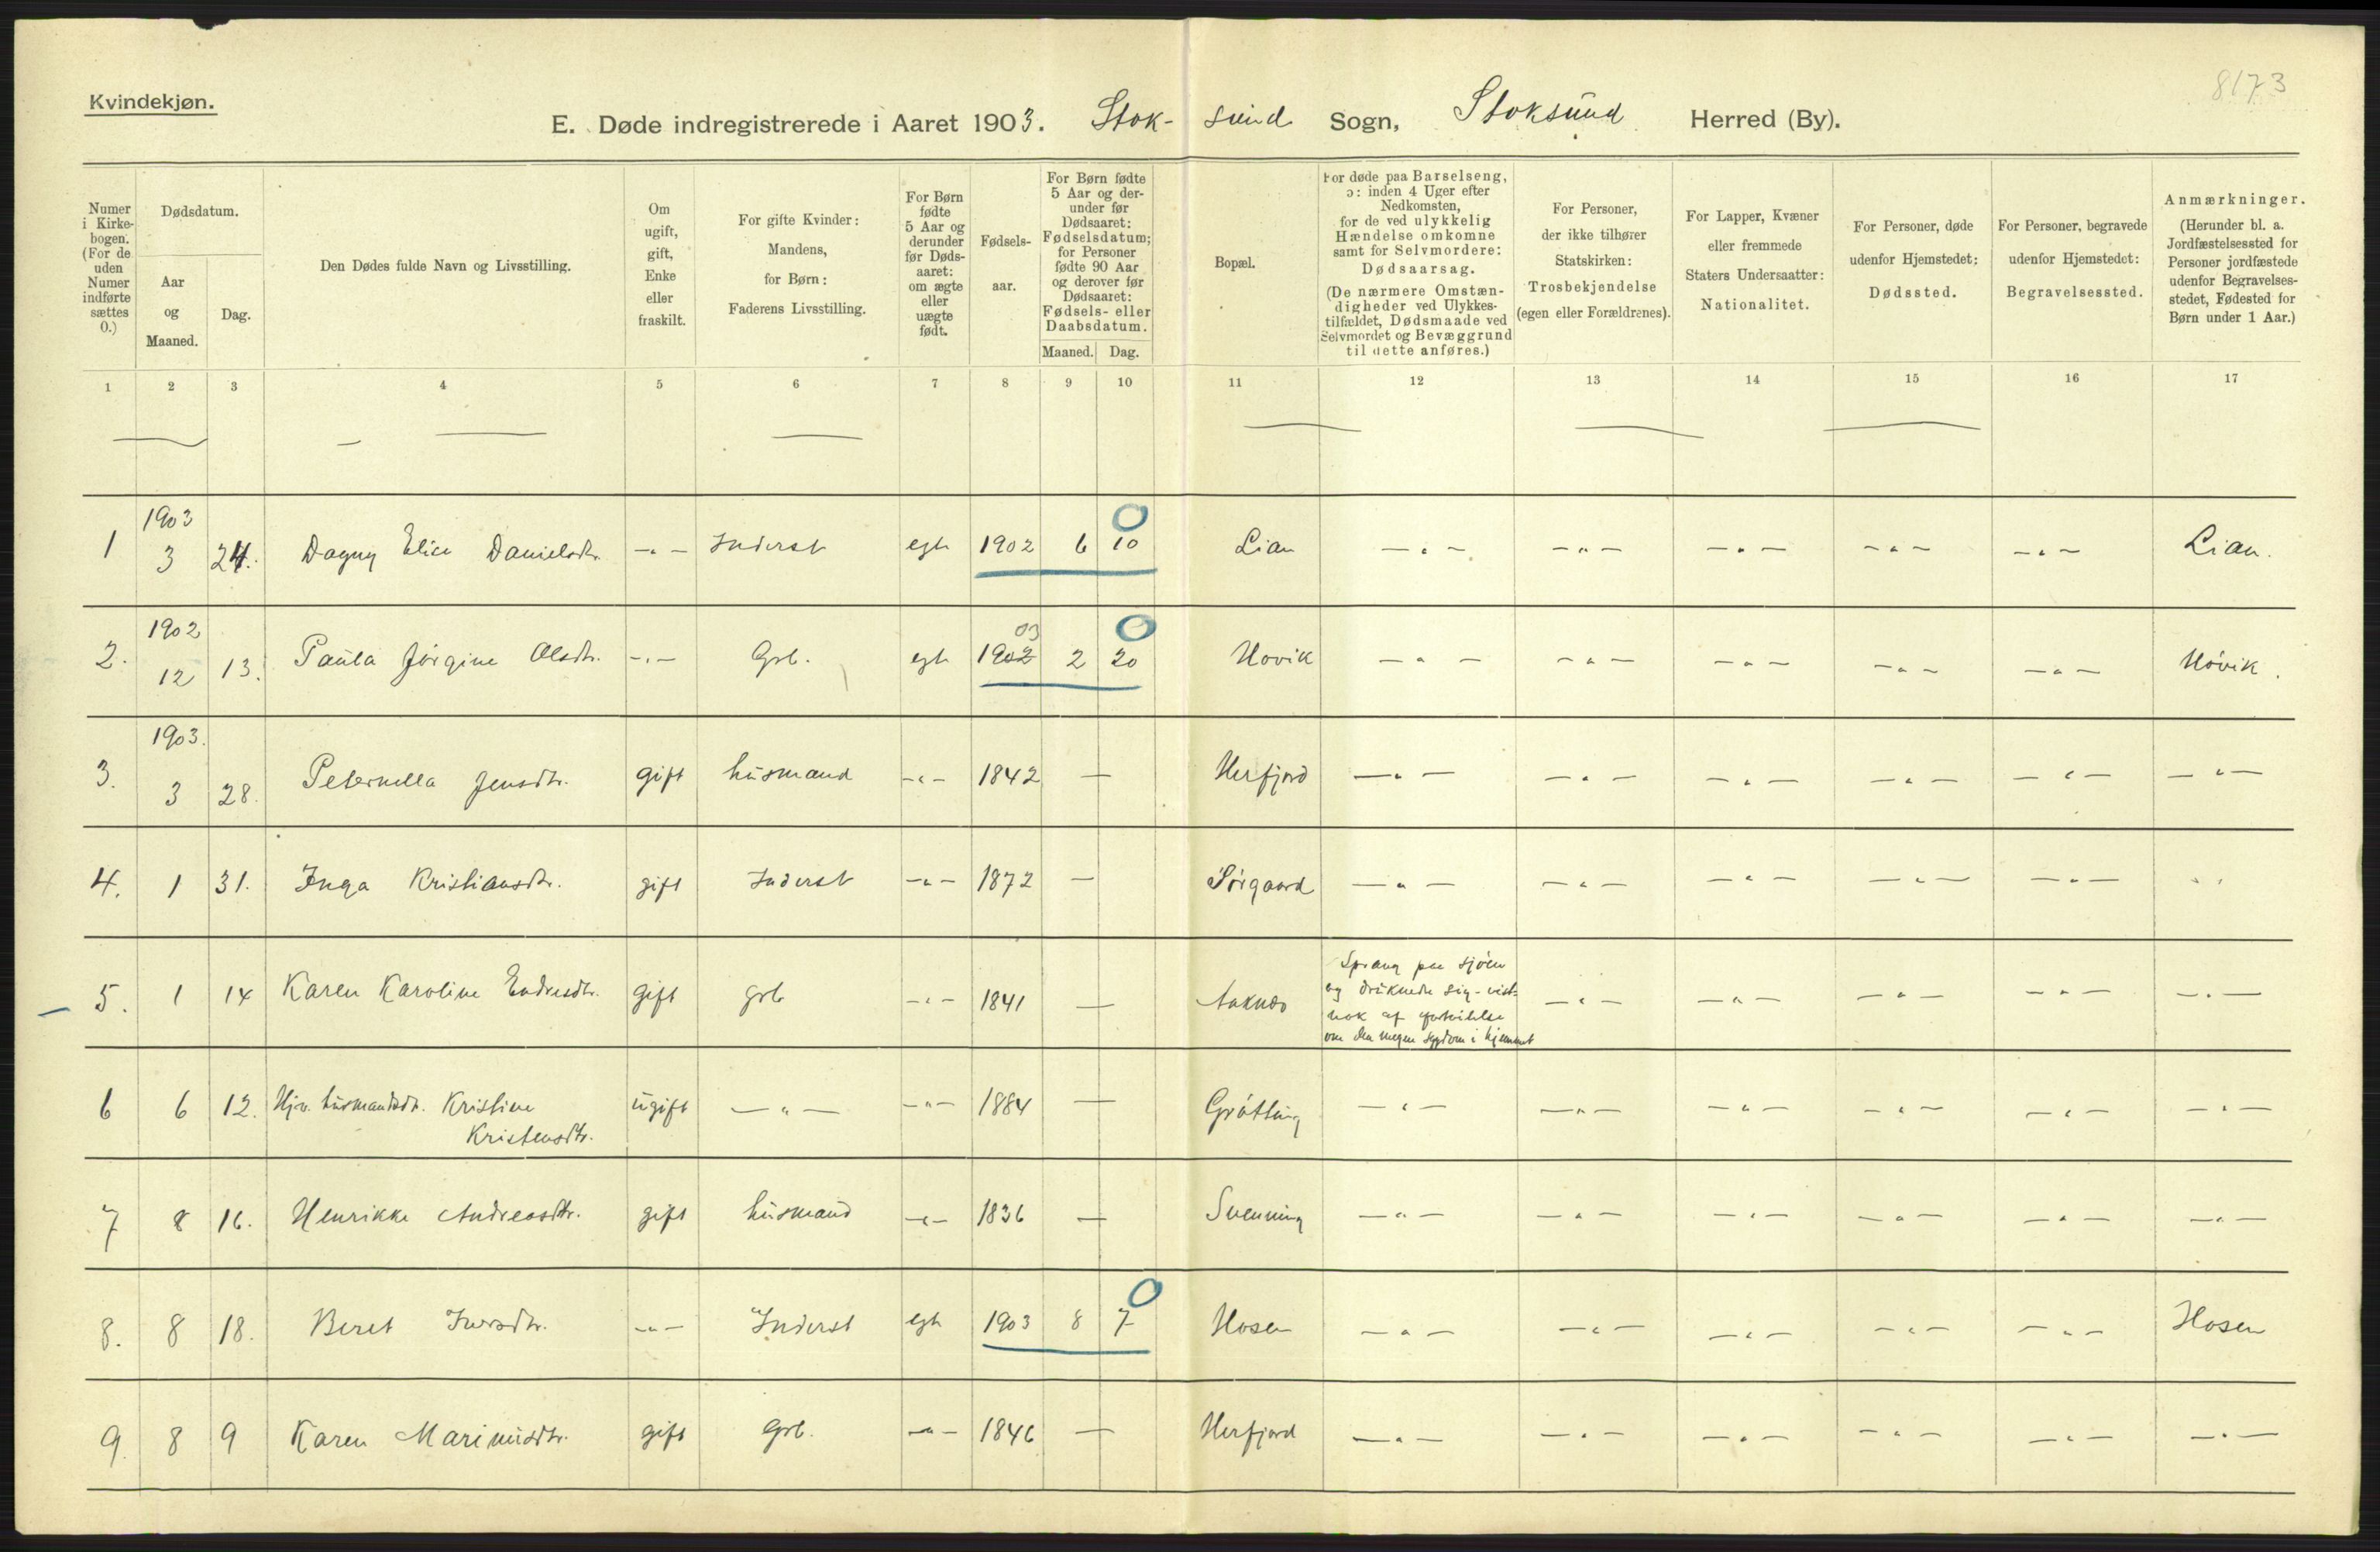 8173
Kvindekjøn.
E. Døde indregistrerede i Aaret 1903. Stok- sund Sogn, Stoksund Herred (By).
Numer i Kirke-bogen. (For de uden Numer indførte sættes 0.)
Dødsdatum.
Aar og Maaned.
Dag.
Den Dødes fulde Navn og Livsstilling.
Om ugift, gift, Enke eller fraskilt.
For gifte Kvinder: Mandens, for Børn: Faderens Livsstilling.
For Børn fødte 5 Aar og derunder før Døds-aaret: om ægte eller uægte født.
Fødsels-aar.
For Børn fødte 5 Aar og der-under før Dødsaaret: Fødselsdatum; for Personer fødte 90 Aar og derover før Dødsaaret: Fødsels- eller Daabsdatum.
Maaned. Dag.
Bopæl.
For døde paa Barselseng, ɔ: inden 4 Uger efter Nedkomsten, for de ved ulykkelig Hændelse omkomne samt for Selvmordere: Dødsaarsag. (De nærmere Omstæn-digheder ved Ulykkes-tilfældet, Dødsmaade ved Selvmordet og Bevæggrund til dette anføres.)
For Personer, der ikke tilhører Statskirken: Trosbekjendelse (egen eller Forældrenes).
For Lapper, Kvæner eller fremmede Staters Undersaatter: Nationalitet.
For Personer, døde udenfor Hjemstedet: Dødssted.
For Personer, begravede udenfor Hjemstedet: Begravelsessted.
Anmærkninger. (Herunder bl. a. Jordfæstelsessted for Personer jordfæstede udenfor Begravelses-stedet, Fødested for Børn under 1 Aar.)
1 2 3 4 5 6 7 8 9 10 11 12 13 14 15 16 17
1 1903 3 24. Dagny Elise Danielsdtr. -"- Inderst egte 1902 6 10 0 Lian -"- -"- -"- -"- -"- Lian.
2. 1902 12 13. Paula Jørgine Olsdtr. -"- Grb. egte 1902 03 2 20 0 Hovik -"- -"- -"- -"- -"- Hövik.
3. 1903. 3 28. Peternella Jensdtr. gift husmand -"- 1842 — Herfjord -"- -"- -"- -"- -"- -"-
4. 1 31. Inga Kristiansdtr. gift Inderst -"- 1872 — Sörgaard -"- -"- -"- -"- -"- "
5. 1 14 Karen Karoline Endresdtr. gift grb -"- 1841 — Aaknes
Sprang paa sjöen
og druknede sig - vist=
nok af fortvilelse
om den megen sygdom i hjemmet
-"- -"- -"- -"- -"-
6 6 12. Hjv. husmandsdr. Kristine
Kristensdtr. ugift -"- -"- 1884 — Grötting -"- -"- -"- -"- -"- -"-
7 8 16. Henrikke Andreasdtr. gift husmand -"- 1836 — Svenning -"- -"- -"- -"- -"- -"-
8. 8 18. Beret Iversdtr. -"- Inderst egte 1903 8 7 0 Hosen -"- -"- -"- -"- -"- Hosen
9. 8 9 Karen Marimusdtr. gift Grb. -"- 1846 — Herfjord -"- -"- -"- -"- -"- -"-